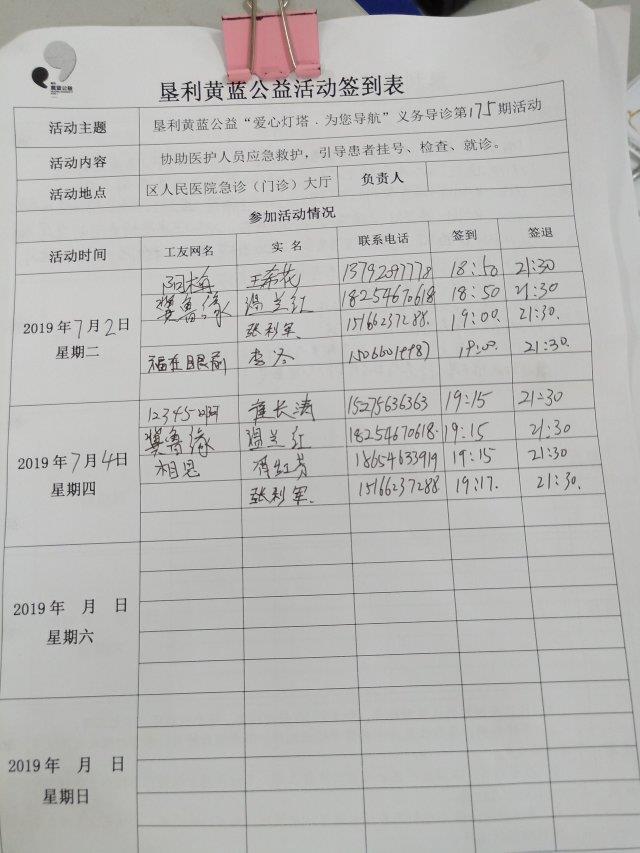 黄蓝公益
垦利黄蓝公益活动签到表
活动主题 垦利黄蓝公益“爱心灯塔．为您导航”义务导诊第175期活动
活动内容 协助医护人员应急救护，引导患者挂号、检查、就诊。
活动地点 区人民医院急诊（门诊）大厅 负责人
参加活动情况
活动时间 工友网名 实 名 联系电话 签到 签退
阳梅 王希花 13792097778 18:50 21:30
冀鲁缘 温兰红 18254670618 18:50 21:30
2019年7月2日
星期二
张利军. 15166237288. 19:00. 21:30.
福在眼前 李冬 19:00. 21:30.
12345啊 崔长涛 15275636363 19:15 21:30
冀鲁缘 温兰红 18254670618. 19:15 21:30
2019年7月4日
星期四
相思 冯红芳 18654633919 19:15 21:30
张利军. 15166237288 19:17. 21:30.
2019年 月 日
星期六
2019年 月 日
星期日